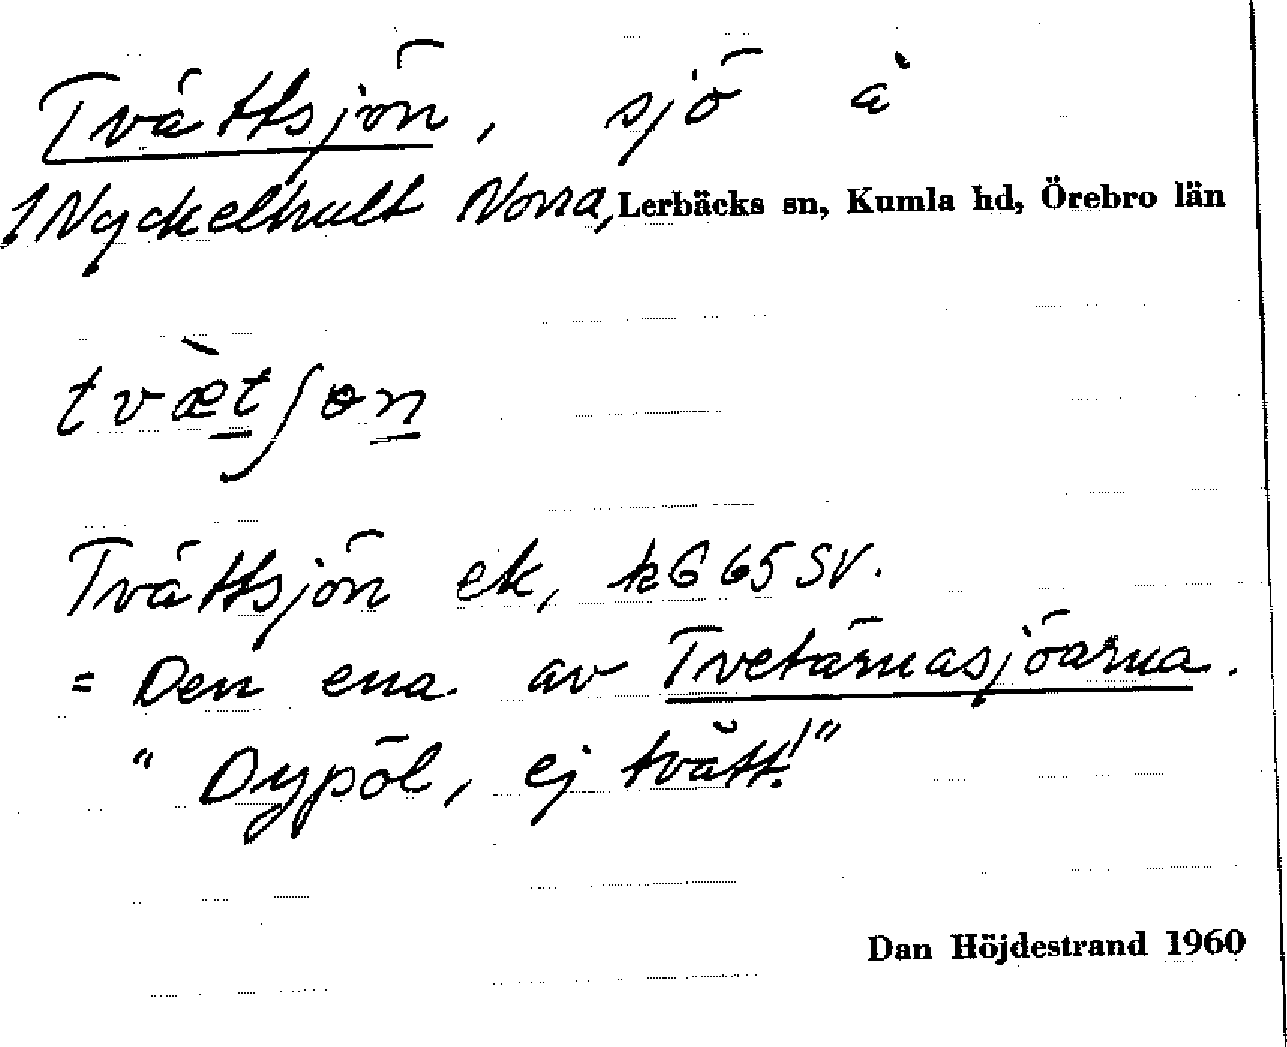 Tvättsjön, sjö å
1 Nyckelhult Norra, Lerbäcks sn, Kumla hd, Örebro län
tvæ̀tʃɵn
Tvättsjön ek, k 6 65 SV.
= Den ena av Tvetärnasjöarna.
" Dypöl, ej tvätt!"
Dan Höjdestrand 1960